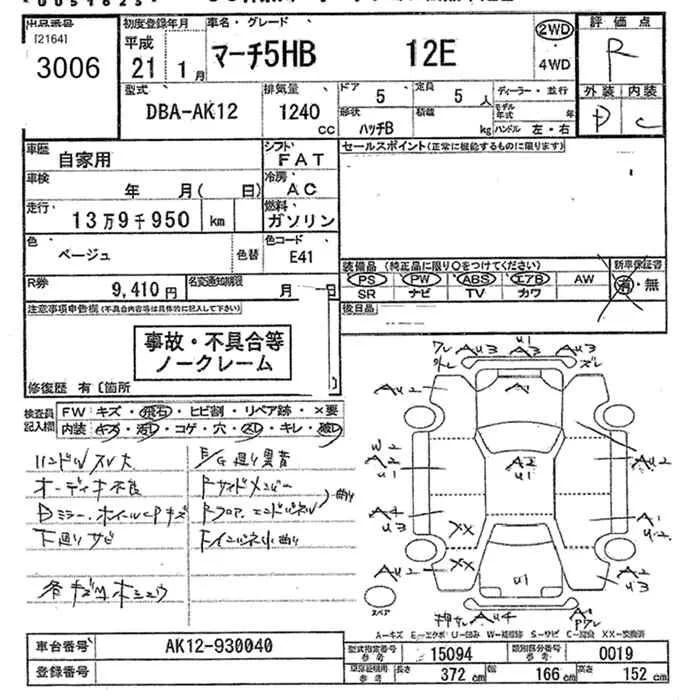 出品番号
[2164]
3006
初度登録年月
平成
21 1月
車名・グレード
マーチ5HB 12E
2WD
・
4WD
評価点
R
型式
DBA-AK12
排気量
1240 cc
ドア
5
定員
5人
形状
ハッチB
積載
kg
ディーラー・並行
モデル年式 年
ハンドル 左・右
外装 内装
D C
車歴
自家用
シフト
FAT
セールスポイント(正常に機能するものに限ります)
車検
年 月( 日)
冷房
AC
走行
13万9千950 km
燃料
ガソリン
色
ベージュ
色替
色コード
E41
装備品 (純正品に限り○をつけてください)
新車保証書
PS PW ABS エアB AW
SR ナビ TV カワ
有・無
R券
9,410円
名変通知期限
月 日
後日品
注意事項申告欄(不具合内容等は具体的に記入して下さい)
事故・不具合等
ノークレーム
修復歴 有〔箇所
検査員
記入欄
FW キズ・飛石・ヒビ割・リペア跡・×要
内装 キズ・汚し・コゲ・穴・スレ・キレ・破レ
ハンドルスレ大
オーディオ不良
Dミラー・ホイールCPキズ
下廻りサビ
各キズ凹ホシュウ
E/G廻り異音
Fサイドメンバー
Fフロア、エンドパネル
曲り
Fインパネ小曲り
ワレ
外レ
AU3
U1
AU3
ズレ
AU2
A1
AU2
W2
AU1
A2
U1
AU2
A4
U3
A1
U2
XX
XX
AU2
U1
A2
U3
スペア
押サレ
AU4
A1
Pワレ
A-キズ E-エクボ U-凹み W-補修跡 S-サビ C-腐食 XX-交換済
車台番号
AK12-930040
登録番号
型式指定番号
参考
15094
類別区分番号
参考
0019
車検証概用
参考
長さ
372 cm
幅
166 cm
高さ
152 cm